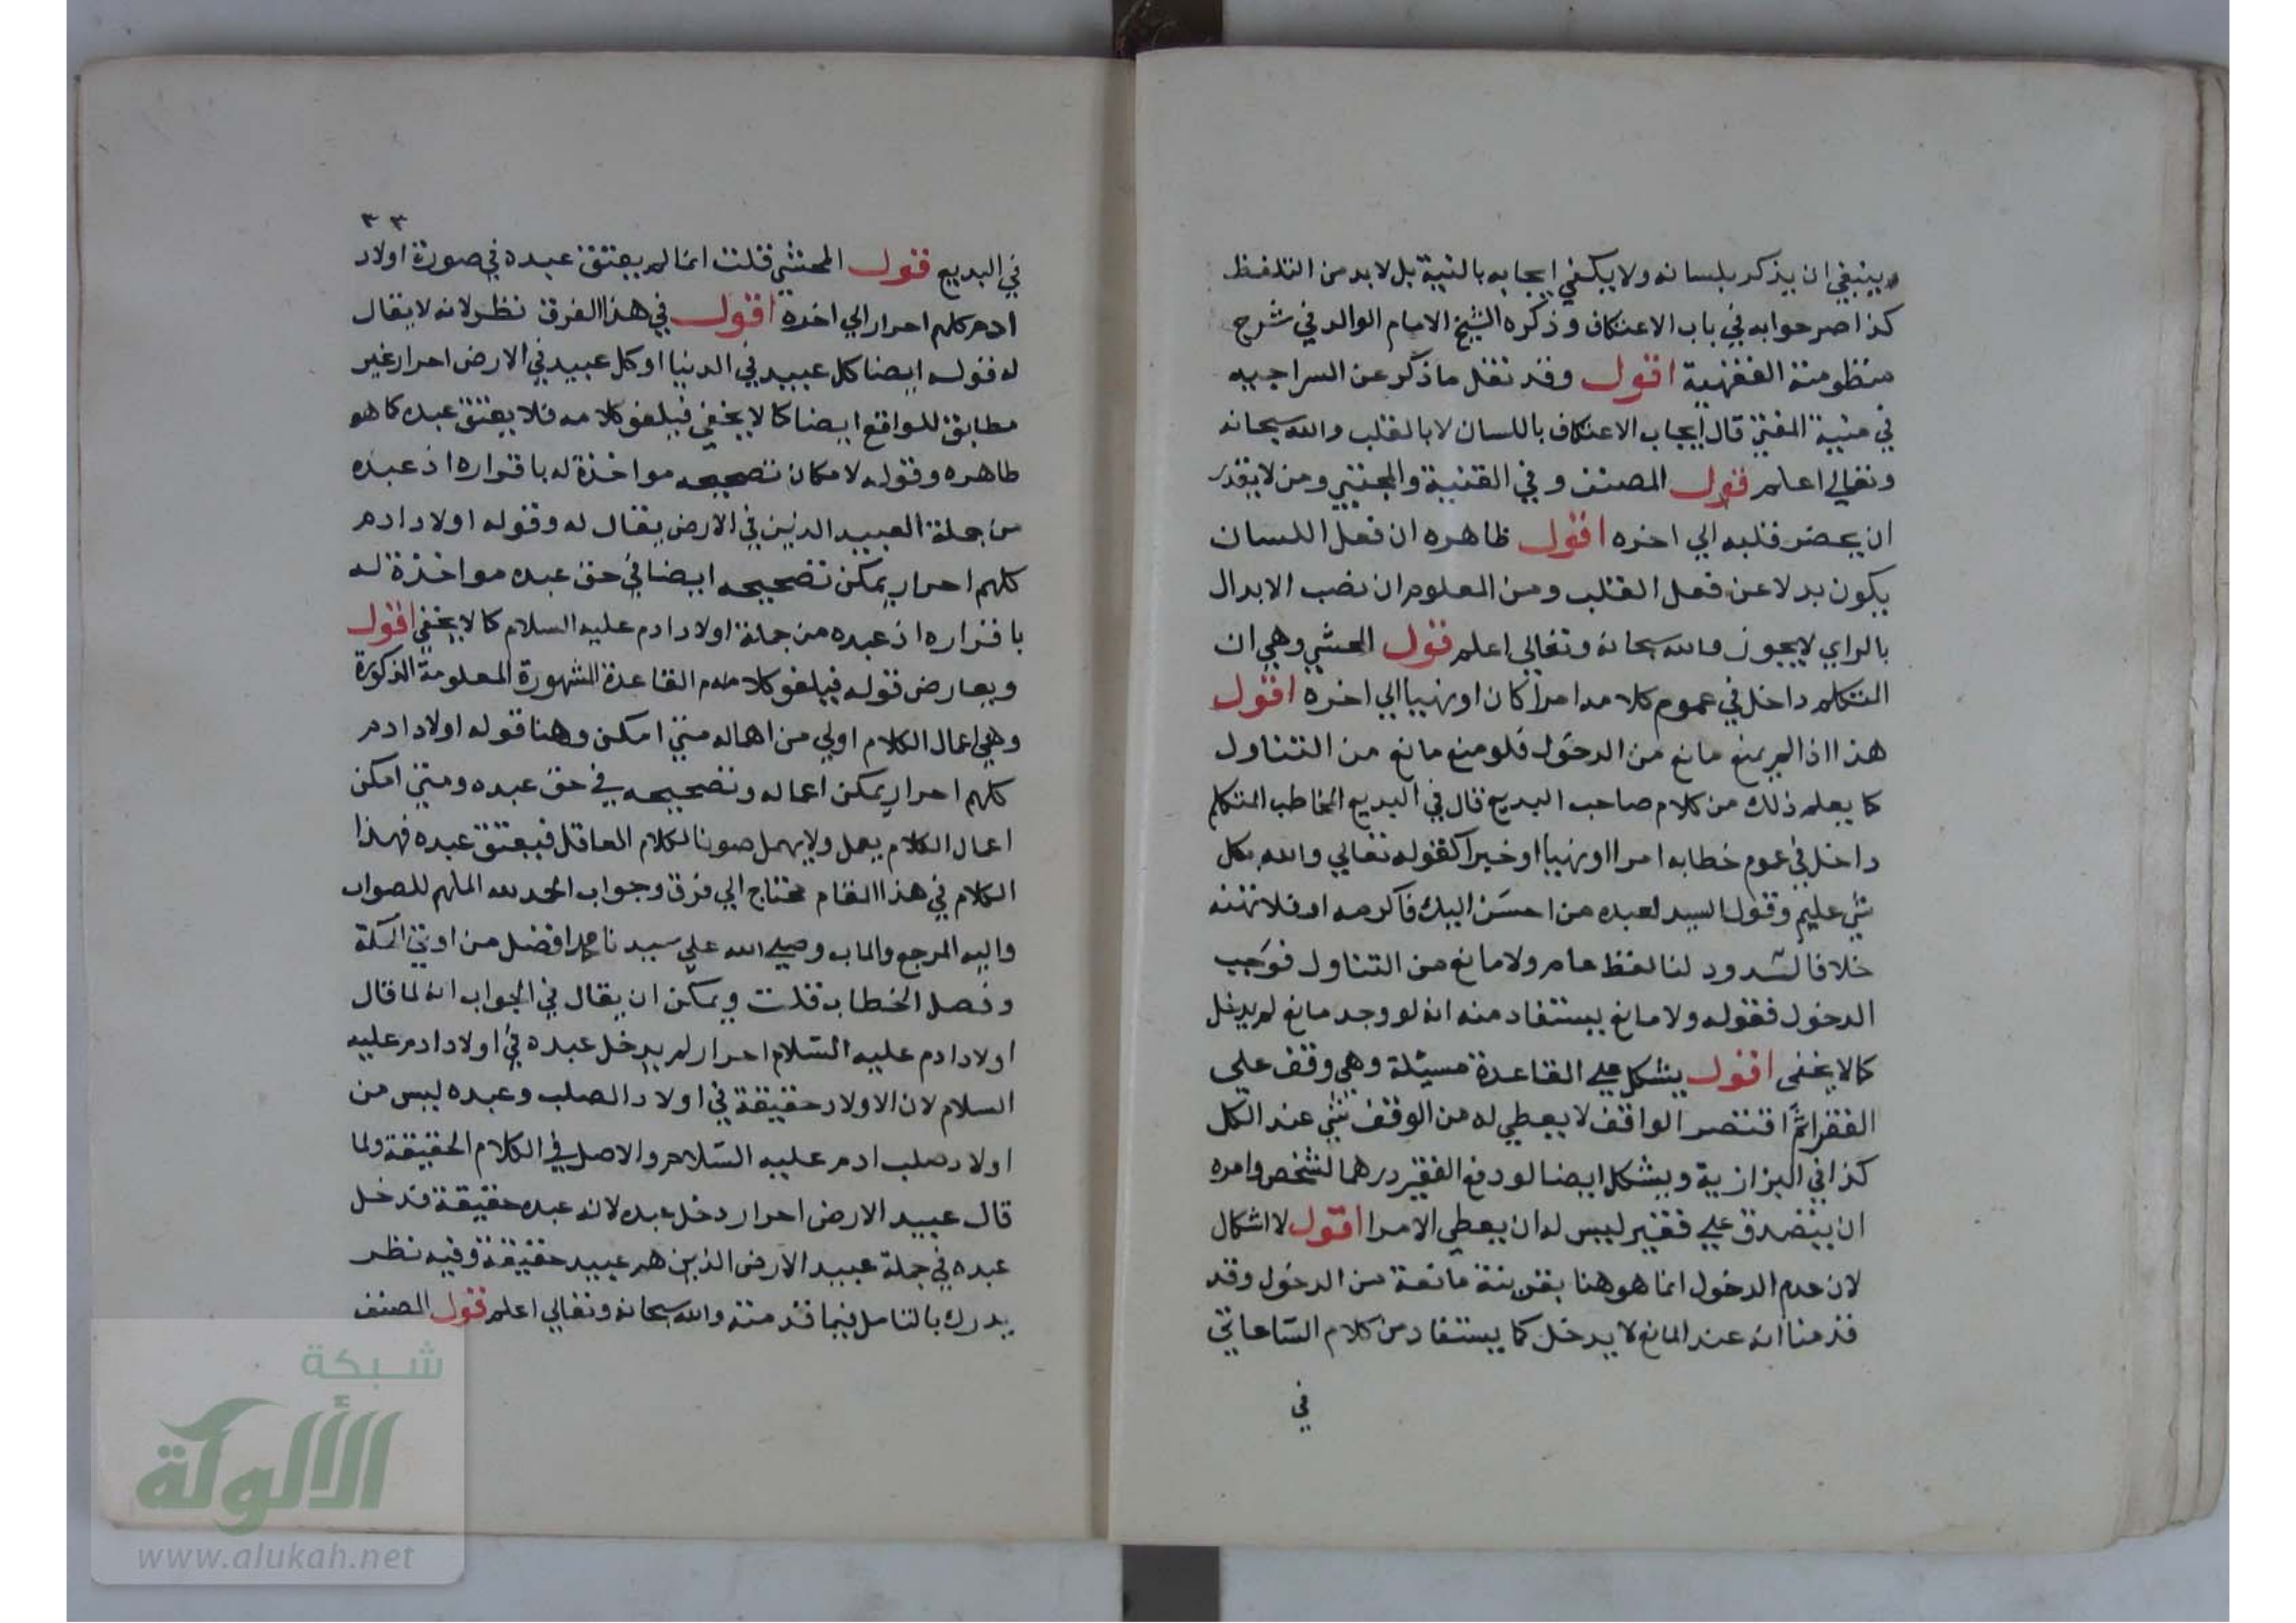 وينبغي ان يذكر بلسانه ولا يكفي ايجابه بالنية بل لا بد من التلفظ
كذا صرحوا به في باب الاعتكاف وذكره الشيخ الامام الوالد في شرح
منظومته الفقهية اقول وقد نقل ما ذكر عن السراجيه
في منية المفتي قال ايجاب الاعتكاف باللسان لا بالقلب والله سبحانه
وتعالي اعلم قول المصنف و في القنية والمجتبي ومن لا يقدر
ان يحضر قلبه الي اخره اقول ظاهره ان فعل اللسان
يكون بدلا عن فعل القلب ومن المعلوم ان نصب الابدال
بالراي لا يجوز والله سبحانه وتعالي اعلم قول المحشي وهي ان
المتكلم داخل في عموم كلامه امرا كان او نهيا الي اخره اقول
هذا اذا لم يمنع مانع من الدخول فلو منع مانع من التناول
كما يعلم ذلك من كلام صاحب البديع قال في البديع المخاطب المتكلم
داخل في عموم خطابه امرا او نهيا او خبرا كقوله تعالي والله بكل
شي عليم وقول السيد لعبده من احسن اليك فاكرمه او فلا تهنه
خلافا لشذوذ لنا لفظ عام ولا مانع من التناول فوجب
الدخول فقوله ولا مانع يستفاد منه انه لو وجد مانع لم يدخل
كما لا يخفى اقول يشكل علي القاعدة مسئلة وهي وقف علي
الفقرا ثم افتقر الواقف لا يعطي له من الوقف شي عند الكل
كذا في البزازية ويشكل ايضا لو دفع الفقير درهما لشخص وامره
ان يتصدق علي فقير ليس له ان يعطي الامر اقول لا اشكال
لان عدم الدخول انما هو هنا بقرينة مانعة من الدخول وقد
قدمنا انه عند المانع لا يدخل كما يستفاد من كلام الساعاتي
في
٣٣
في البديع قول المحشي قلت انما لم يعتق عبده في صورة اولاد
ادم كلهم احرار الي اخره اقول في هذا الفرق نظر لانه لا يقال
له قوله ايضا كل عبيد في الدنيا او كل عبيد في الارض احرار غير
مطابق للواقع ايضا كما لا يخفي فيلغو كلامه فلا يعتق عبده كما هو
ظاهره وقوله لامكان تصحيحه مواخذة له باقراره اذ عبده
من جملة العبيد الذين في الارض يقال له وقوله اولاد ادم
كلهم احرار يمكن تصحيحه ايضا في حق عبده مواخذة له
باقراره اذ عبده من جملة اولاد ادم عليه السلام كما لا يخفي اقول
ويعارض قوله فيلغو كلامه القاعدة المشهورة المعلومة المذكورة
وهي اعمال الكلام اولي من اهماله متي امكن وهنا قوله اولاد ادم
كلهم احرار يمكن اعماله وتصحيحه في حق عبده ومتي امكن
اعمال الكلام يعمل ولا يهمل صونا لكلام العاقل فيعتق عبده فهذا
الكلام في هذا المقام محتاج الي فرق وجواب الحمد لله الملهم للصواب
واليه المرجع والماب وصلي الله علي سيدنا محمد افضل من اوتي الحكمة
وفصل الخطاب قلت ويمكن ان يقال في الجواب انه لما قال
اولاد ادم عليه السلام احرار لم يدخل عبده في اولاد ادم عليه
السلام لان الاولاد حقيقة في اولاد الصلب وعبده ليس من
اولاد صلب ادم عليه السلام والاصل في الكلام الحقيقة ولما
قال عبيد الارض احرار دخل عبده لانه عبده حقيقة فدخل
عبده في جملة عبيد الارض الذين هم عبيد حقيقة وفيه نظر
يدرك بالتامل فيما قدمته والله سبحانه وتعالي اعلم قول المصنف
شبكة
الألوكة
www.alukah.net